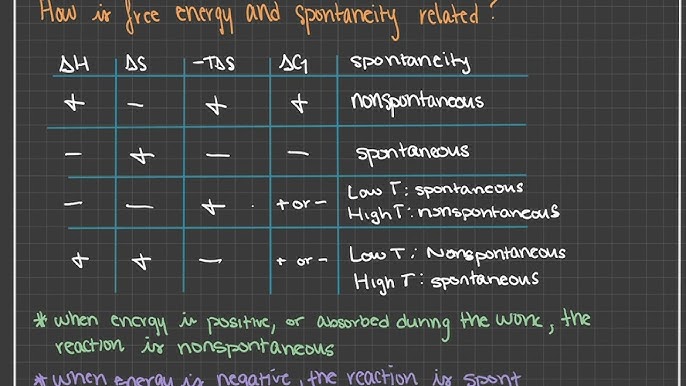 How is free energy and spontaneity related?
ΔH ΔS -TΔS ΔG spontaneity
+ - + + nonspontaneous
- + - - spontaneous
- - + + or - Low T: spontaneous
High T: nonspontaneous
+ + - + or - Low T: Nonspontaneous
High T: spontaneous
* when energy is positive, or absorbed during the work, the
reaction is nonspontaneous
* when energy is negative, the reaction is spont